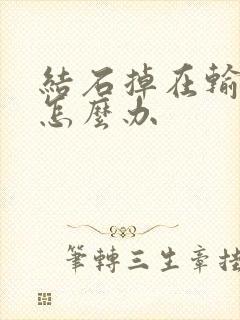 結石掉在輸
怎麼办
筆轉三生章挂